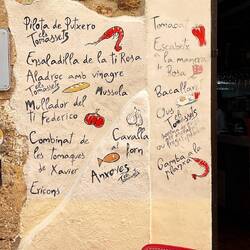 Pilota de Putxero
els
Tomassets
Ensaladilla de la ti Rosa
Aladroc amb vinagre
Tomassets
Mussola
Mullador del
ti Federico
Combinat de
les tomaques
de Xavier
Ericons
Cavalla
al forn
Anxoves
Tomasets
Tomacat
Escabetx
a la manera
ti Rosa
Bacallar
Ous
Tomassets
Gamba